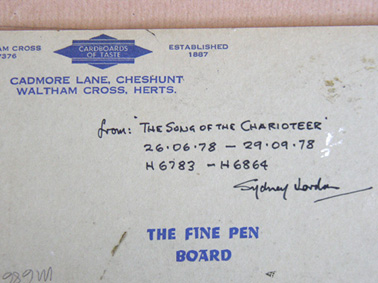 AM CROSS
7376
CARDBOARDS
OF TASTE
ESTABLISHED
1887
CADMORE LANE, CHESHUNT
WALTHAM CROSS, HERTS.
from: "THE SONG OF THE CHARIOTEER"
26·06·78 — 29·09·78
H6783 — H6864
Sydney Jordan
THE FINE PEN
BOARD